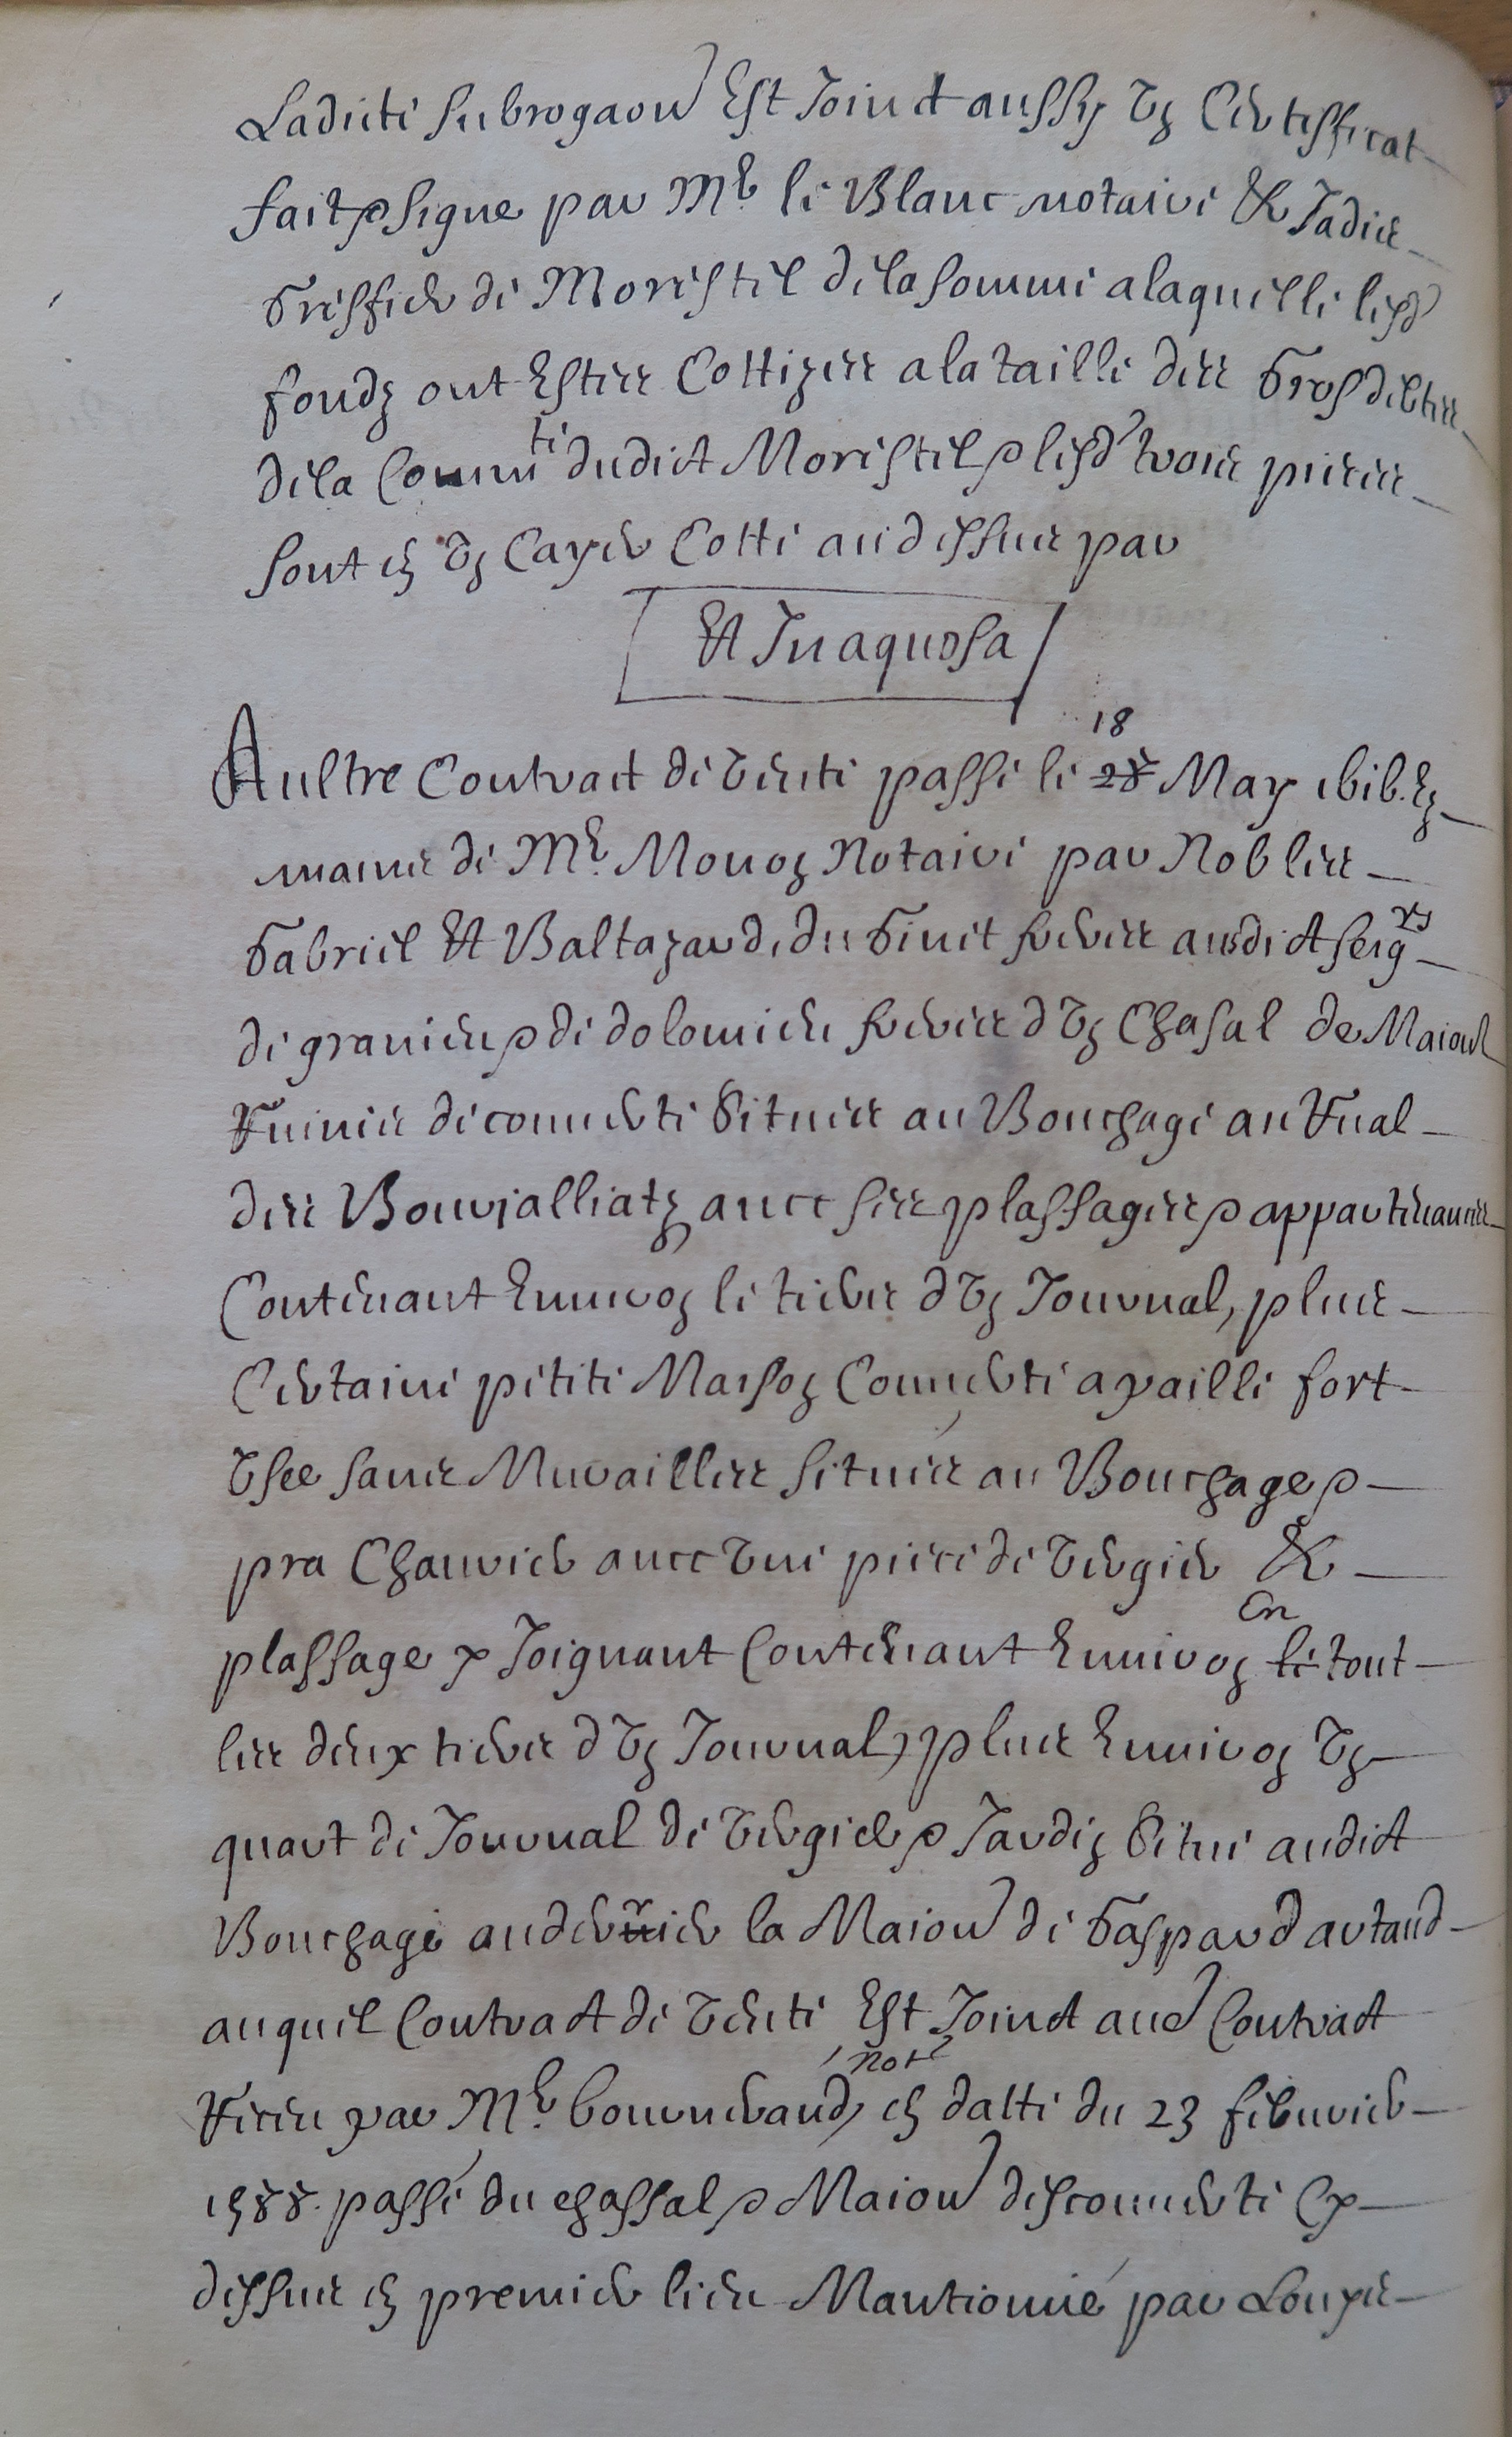 Ladicte subrogaõn Est Joinct aussy Vn Certifficat
fait & signe par Me le Blanc notaire & Jadis
Greffier de Morestel de la somme a laquelle lesd
fondz ont Estes Cottizes a la taille des
de la Commte dudict Morestel & lesd trois pieces
sont en Vn Cayer Cotte au dessus par
Et Jnaquosa
Aultre Contract de Vente passe le 18 May 1616. Ez
mains de Me. Monoz Notaire par Nobles
Gabriel Et Baltazard, du Ginet freres ausdict seigrs
de granieu & de dolomieu freres d Vn Chasal de Maiõn
Ruines decouverte Situes au Bouchage au Rual
des Bourjalliatz avec ses plassages & appartenances
Contenant Environ le tiers d Vn Journal, plus
Certaine petite Maison Couverte a pailli fort
Vsee sans Murailles situes au Bouchage &
pra Chanvier avec Vne piece de Vergier &
plassage y Joignant Contenant Environ le En tout
les deux tiers d Vn Journal, plus Environ Vn
quart de Journal de Vergier & Jardin Situe audict
Bouchage au derrier la Maiõn de Gaspard artaud
auquel Contract de Vente Est Joinct aue Contract
Receu par Me bouvveraud, not en datte du 23 febvrier
1588. passé du chassal & Maiõn descouverte Cy
dessus en premier lieu Mantionné par Louys